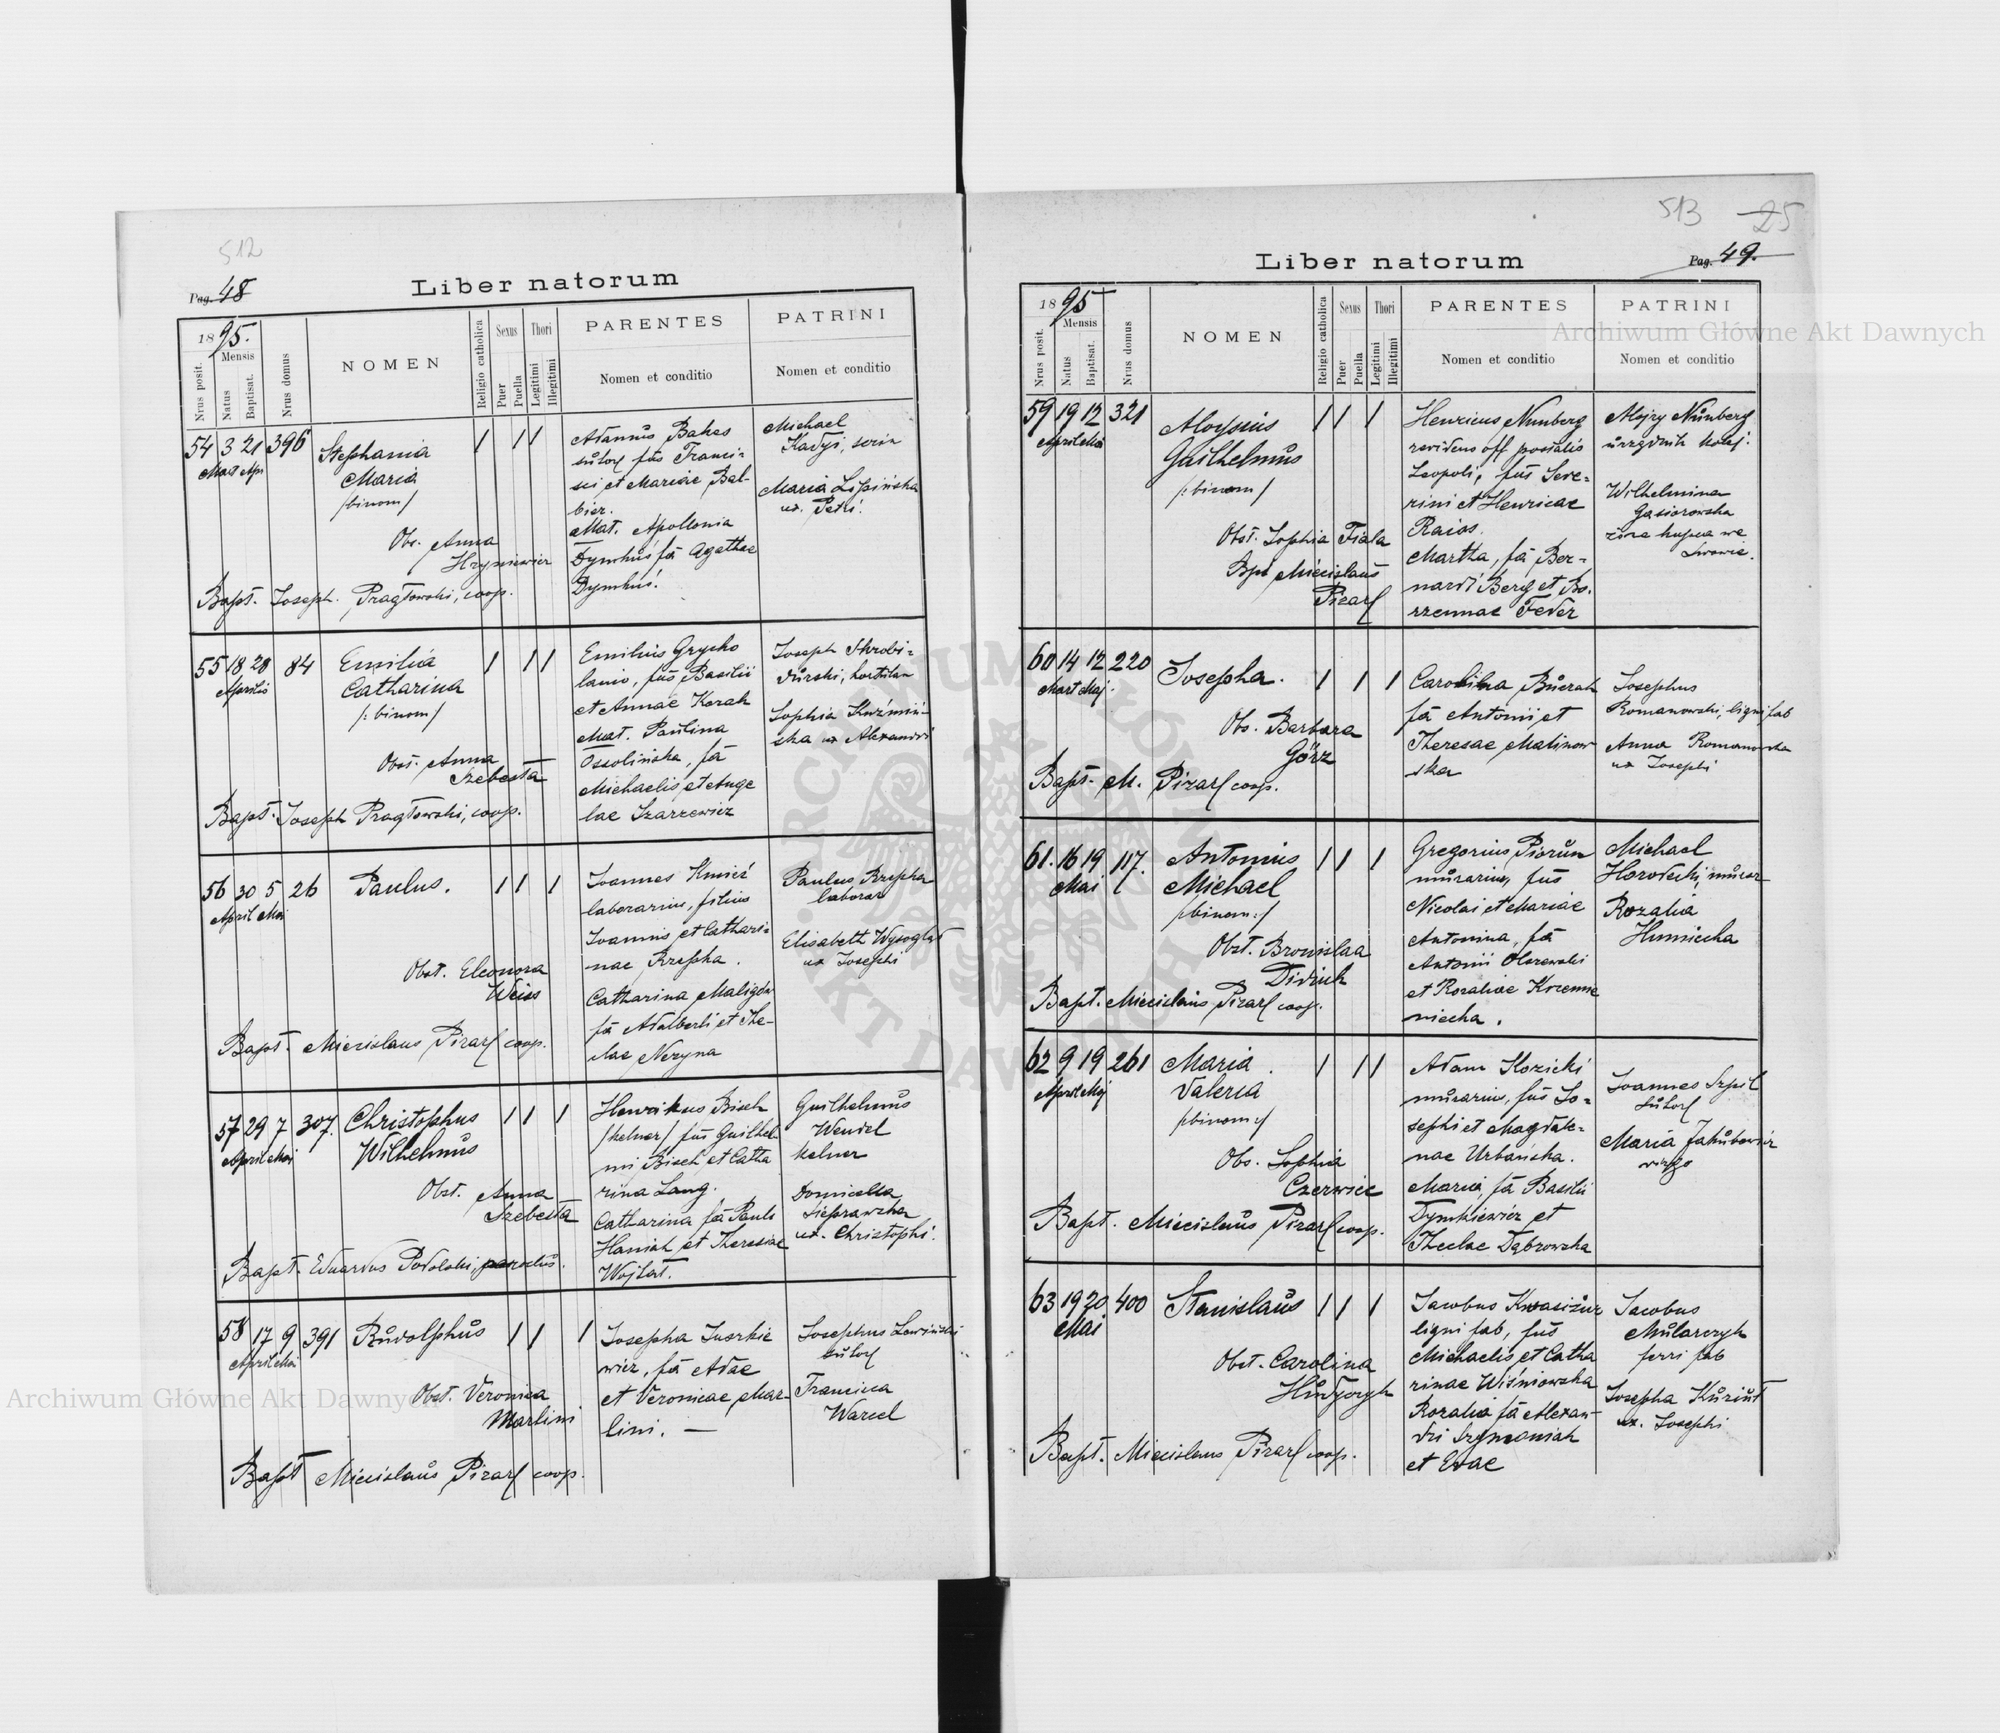 512
Pag. 48
Liber natorum
1895.
Mensis
Nrus posit.
Natus
Baptisat.
Nrus domus
NOMEN
Religio catholica
Sexus
Puer
Puella
Thori
Legitimi
Illegitimi
PARENTES
Nomen et conditio
PATRINI
Nomen et conditio
54 3 21 396
Mart Apr
Stephania
Maria
/binom/
Obs. Anna
Hryniewicz
Bapt. Joseph. Pragłowski, coop.
Adamus Bakes
sutor fus Franci-
sci et Mariae Bal-
bier.
Mat. Apollonia
Dymkus fa Agathae
Dymkus.
Michael
Kadyi,
Maria Lipińska
ux. Petri.
55 18 28 84
Aprilis
Emilia
Catharina
/:binom/
Obst. Anna
Szebesta
Bapt. Joseph Pragłowski, coop.
Emilius Grycko
lanio, fus Basilii
et Annae Korak
Mat. Paulina
Ossolińska, fa
Michaelis et Ange
lae Szarzewicz
Joseph Skrobi-
durski, hortulan
Sophia Kuźmiń-
ska ux Alexandri
56 30 5 26
April Mai
Paulus.
Obst. Eleonora
Weiss
Bapt. Miecislaus Pizar coop.
Joannes Kmieć
laborarius, filius
Joannis et Cathari-
nae Rzepka.
Catharina Maligów
fa Adalberti et The-
clae Neryna
Paulus Rzepka
laborar
Elisabeth Wysogląd
ux Josephi
57 29 7 307.
April Mai
Christophus
Wilhelmus
Obst. Anna
Szebesta
Bapt. Eduardus Podolski, parochus.
Henrikus Bisch
/kelner/ fus Guilhel-
mi Bisch et Catha
rina Lang.
Catharina fa Pauli
Haniak et Theresiae
Wojtat.
Guilhelmus
Wendel
kelner
Domicella
Sieprawska
ux. Christophi.
58 17 9 391
April Mai
Rudolphus
Obst. Veronica
Martini
Bapt Miecislaus Pizar coop.
Josepha
wicz, fa Adae
et Veronicae Mar-
lini. —
Josephus
sutor
Francisca
Warcel
513 25
Liber natorum
Pag. 49.
1895
Mensis
Nrus posit.
Natus
Baptisat.
Nrus domus
NOMEN
Religio catholica
Sexus
Puer
Puella
Thori
Legitimi
Illegitimi
PARENTES
Nomen et conditio
PATRINI
Nomen et conditio
59 19 12 321
April Mai
Aloysius
Guilhelmus
/:binom/
Obst. Sophia Fiala
Bpt Miecislaus
Pizar
Henricus Nunberg
revidens off postalis
Leopoli, fus Seve-
rini et Henricae
Raios.
Martha, fa Ber-
nardi Berg et Bo-
rzennae Feder
Alojzy Nunberg
urzędnik kolej.
Wilhelmina
Gasiorowska
żona kupca we
Lwowie.
60 14 12 220
Mart Maj.
Josepha.
Obs. Barbara
Görz
Bapt. M. Pizar coop.
Carolina Buczak
fa Antonii et
Theresae Malinow
ska
Josephus
Romanowski, ligni fab
Anna Romanowska
ux Josephi
61. 16 19 117.
Mai
Antonius
Michael
/binom:/
Obst. Bronislaa
Didiuk
Bapt. Miecislaus Pizar coop.
Gregorius Piorun
murarius, fus
Nicolai et Mariae
Antonina, fa
Antonii Olszewski
et Rozaliae Krzemie
niecka.
Michael
Horodecki, murar
Rozalia
Humiecka
62 9 19 261
April Maj
Maria.
Valeria
/binom:/
Obs. Sophia
Czerwiec
Bapt. Miecislaus Pizar coop.
Adam Kozicki
murarius, fus Jo-
sephi et Magdale-
nae Urbańska.
Maria, fa Basilii
Dymkiewicz et
Theclae Dąbrowska
Joannes Szpil
sutor
Maria Jakubowicz
virgo
63 19 20 400
Mai
Stanislaus
Obst. Carolina
Bapt. Miecislaus Pizar coop.
Jacobus Kwasiżur
ligni fab, fus
Michaelis et Catha
rinae Wiśniowska
Rozalia fa Alexan-
dri Szymoniak
et Evae
Jacobus
Mularczyk
ferri fab
Josepha
ux. Josephi
Archiwum Główne Akt Dawnych
Archiwum Główne Akt Dawnych
ARCHIWUM GŁÓWNE AKT DAWNYCH